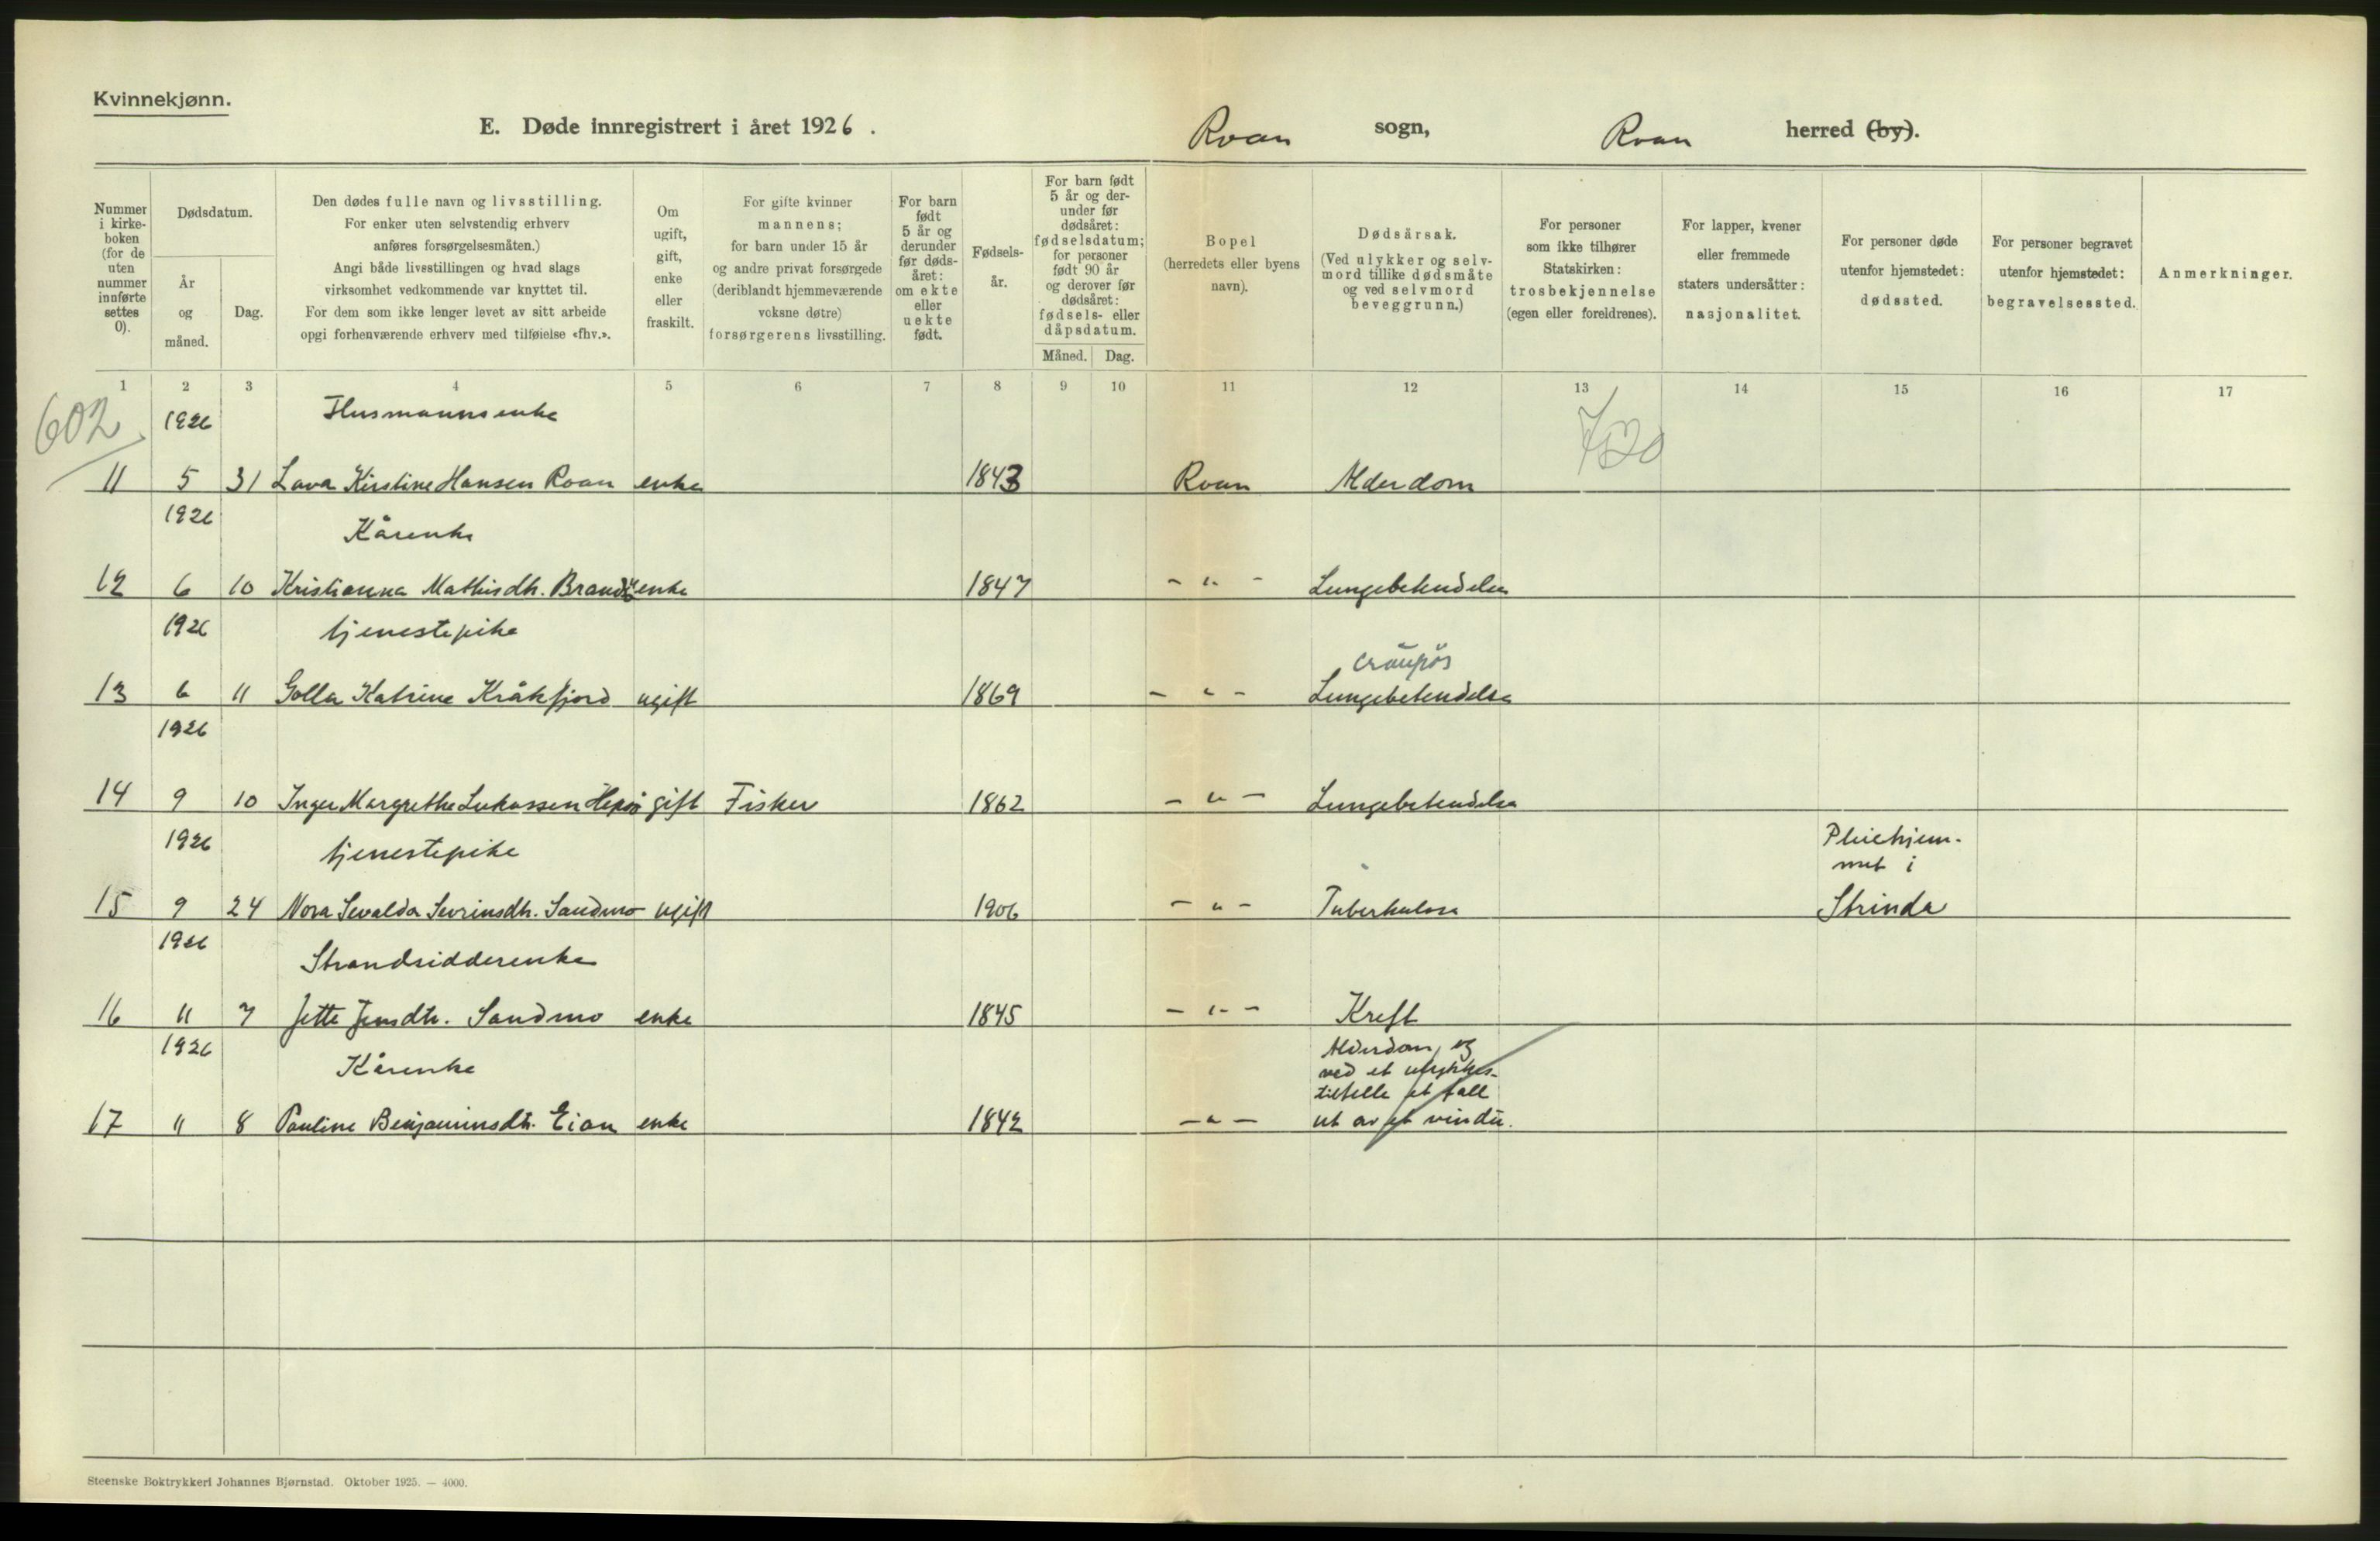 Kvinnekjønn.
E. Døde innregistrert i året 1926. Roan sogn, Roan herred (by).
Nummer i kirke- boken (for de uten nummer innførte settes 0).
Dødsdatum.
År og måned.
Dag.
Den dødes fulle navn og livsstilling.
For enker uten selvstendig erhverv
anføres forsørgelsesmåten.)
Angi både livsstillingen og hvad slags
virksomhet vedkommende var knyttet til.
For dem som ikke lenger levet av sitt arbeide
opgi forhenværende erhverv med tilføielse «fhv.».
Om ugift, gift, enke eller fraskilt.
For gifte kvinner
mannens;
for barn under 15 år
og andre privat forsørgede
(deriblandt hjemmeværende
voksne døtre)
forsørgerens livsstilling.
For barn født 5 år og derunder før døds- året: om ekte eller uekte født.
Fødsels- år.
For barn født 5 år og der- under før dødsåret: fødselsdatum; for personer født 90 år og derover før dødsåret: fødsels- eller dåpsdatum.
Måned. Dag.
Bopel
(herredets eller byens
navn).
Dødsårsak.
(Ved ulykker og selv-
mord tillike dødsmåte
og ved selvmord
beveggrunn.)
For personer
som ikke tilhører
Statskirken:
trosbekjennelse
(egen eller foreldrenes).
For lapper, kvener
eller fremmede
staters undersåtter:
nasjonalitet.
For personer døde
utenfor hjemstedet:
dødssted.
For personer begravet
utenfor hjemstedet:
begravelsessted.
Anmerkninger.
1 2 3 4 5 6 7 8 9 10 11 12 13 14 15 16 17
602
1926 Husmannsenke
11 5 31 Lava Kirstine Hansen Roan enke 1843 Roan Alderdom
1926 Kårenke
12 6 10 Kristianna Mathisdtr. enke 1847 - " - Lungebetendelse
1926 tjenestepike
croupøs
13 6 11 Golla Katrine Kråkfjord ugift 1869 - " - Lungebetendelse
1926
14 9 10 Inger Margrethe Lukassen gift Fisker 1862 - " - Lungebetendelse
1926 tjenestepike Pleiehjem-
met i
15 9 24 Nora Sevalda Sevrinsdtr. Sandmo ugift 1906 - " - Tuberkulose Strinda
1926 Strandsidderenke
16 11 7 Jette Jensdtr. Sandmo enke 1845 - " - Kreft
1926 Kårenke Alderdom, og
ved et ulykkes-
tilfelle et fall
17 11 8 Pauline Benjaminsdtr. Eian enke 1842 - " - ut av et vindu.
Steenske Boktrykkeri Johannes Bjørnstad. Oktober 1925. — 4000.